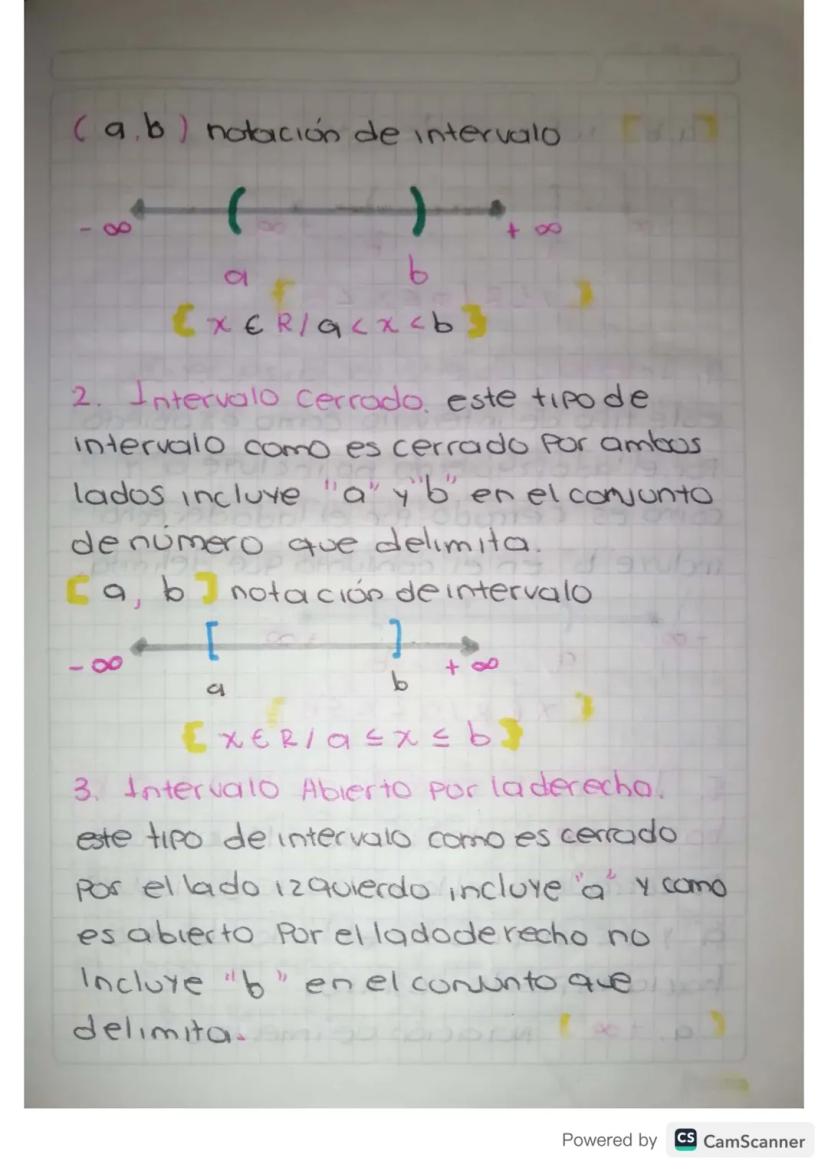 (a,b) notación de intervalo
- ∞ ( ) + ∞
a b
{x ∈ R/a<x<b}
2. Intervalo cerrado. este tipo de
intervalo como es cerrado por ambos
lados incluye "a" y "b" en el conjunto
de número que delimita.
[a, b] notación de intervalo
- ∞ [ ] + ∞
a b
{x ∈ R/a ≤ x ≤ b}
3. Intervalo Abierto por la derecha.
este tipo de intervalo como es cerrado
por el lado izquierdo incluye "a" y como
es abierto por el lado derecho no
incluye "b" en el conjunto que
delimita.
Powered by CS CamScanner